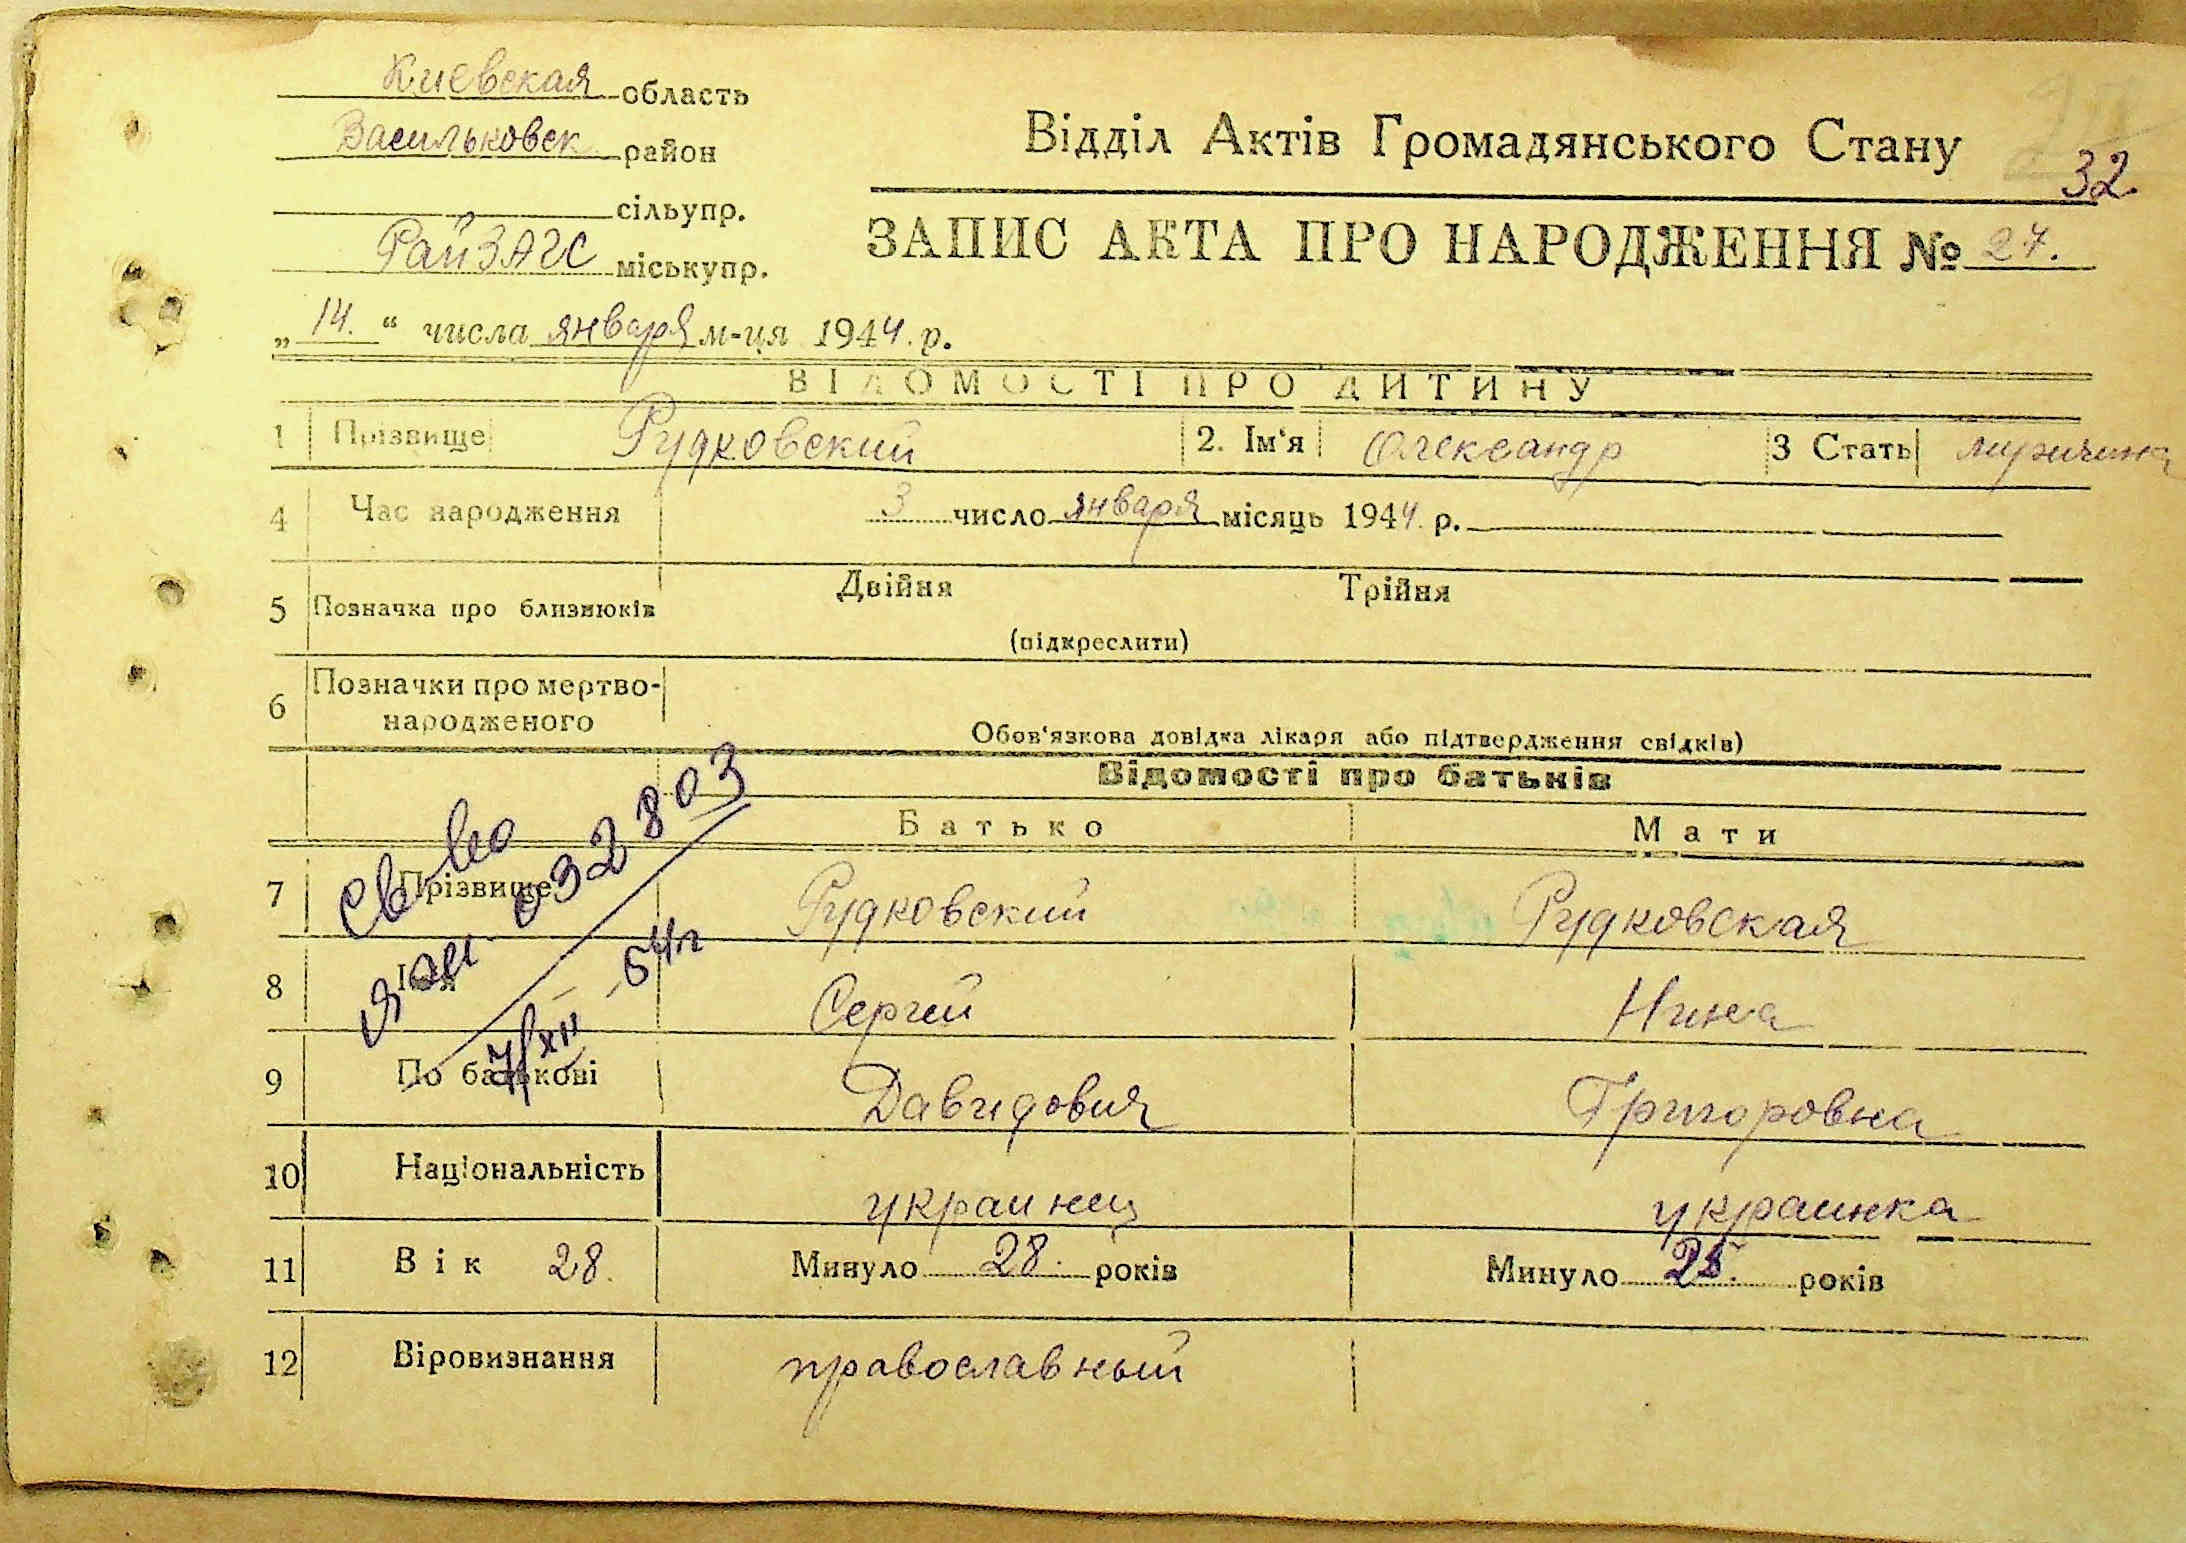 Киевская область
Васильковск район
сільупр.
РайЗАГС міськупр.
Відділ Актів Громадянського Стану
32.
ЗАПИС АКТА ПРО НАРОДЖЕННЯ № 27.
„ 14. “ числа января м-ця 1944. р.
ВІДОМОСТІ ПРО ДИТИНУ
1 Прізвище Рудковский 2. Ім‘я Олександр 3 Стать мужчина
4 Час народження 3 число января місяць 1944. р.
5 Позначка про близнюків Двійня Трійня
(підкреслити)
6 Позначки про мертво-
народженого
Обов‘язкова довідка лікаря або підтвердження свідків)
Відомості про батьків
Батько Мати
7 Прізвище Рудковский Рудковская
8 Ім‘я Сергей Нина
9 По батькові Давидович Григоровна
10 Національність украинец украинка
11 Вік 28. Минуло 28. років Минуло 25. років
12 Віровизнання православный
Св-во
032803
54г